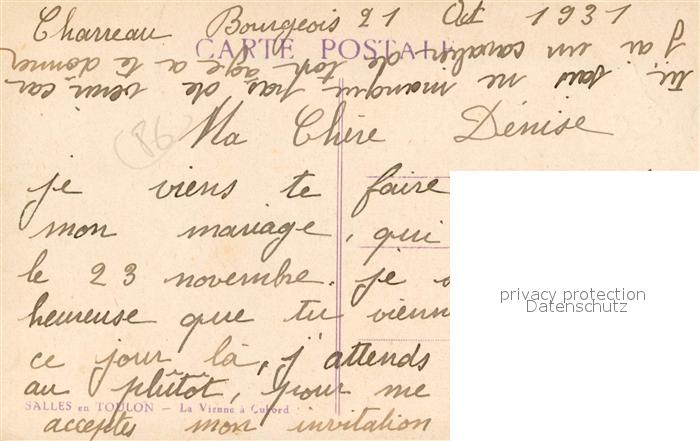 Charreau Bourgeois 21 Oct 1931
CARTE POSTALE
tu sais ne manque pas de venir car
j'ai un cavalier de ton age a te donner
(86)
Ma Chère Dénise
je viens te faire
mon mariage, qui
le 23 novembre. je s
heureuse que tu vienn
ce jour là, j'attends
au plûtot, pour me
acceptes mon invitation
SALLES en TOULON – La Vienne à Cubord
privacy protection
Datenschutz